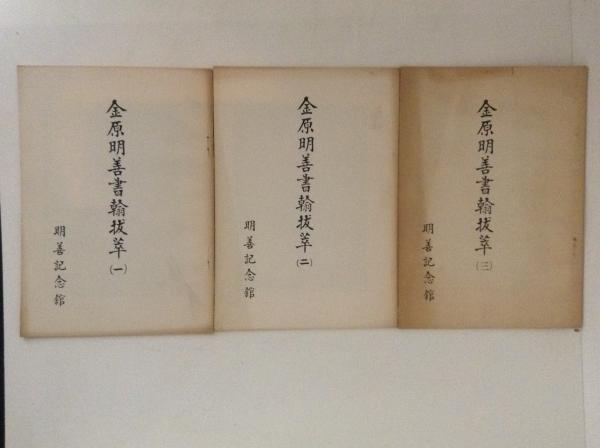 金原明善書翰抜萃(一)
明善記念館
金原明善書翰抜萃(二)
明善記念館
金原明善書翰抜萃(三)
明善記念館